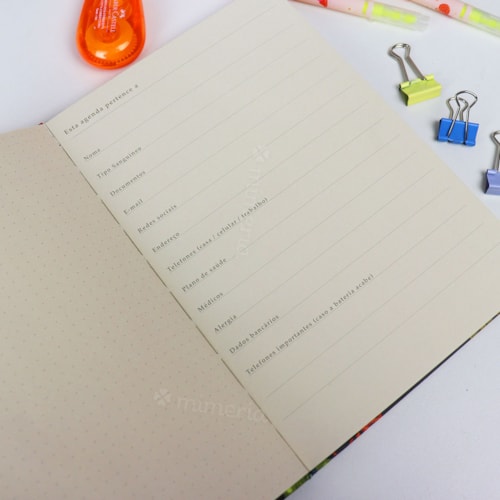 Esta agenda pertence a
Nome
Tipo Sanguíneo
Documentos
E-mail
Redes sociais
Endereço
Telefones (casa / celular / trabalho)
Plano de saúde
Médicos
Alergia
Dados bancários
Telefones importantes (caso a bateria acabe)